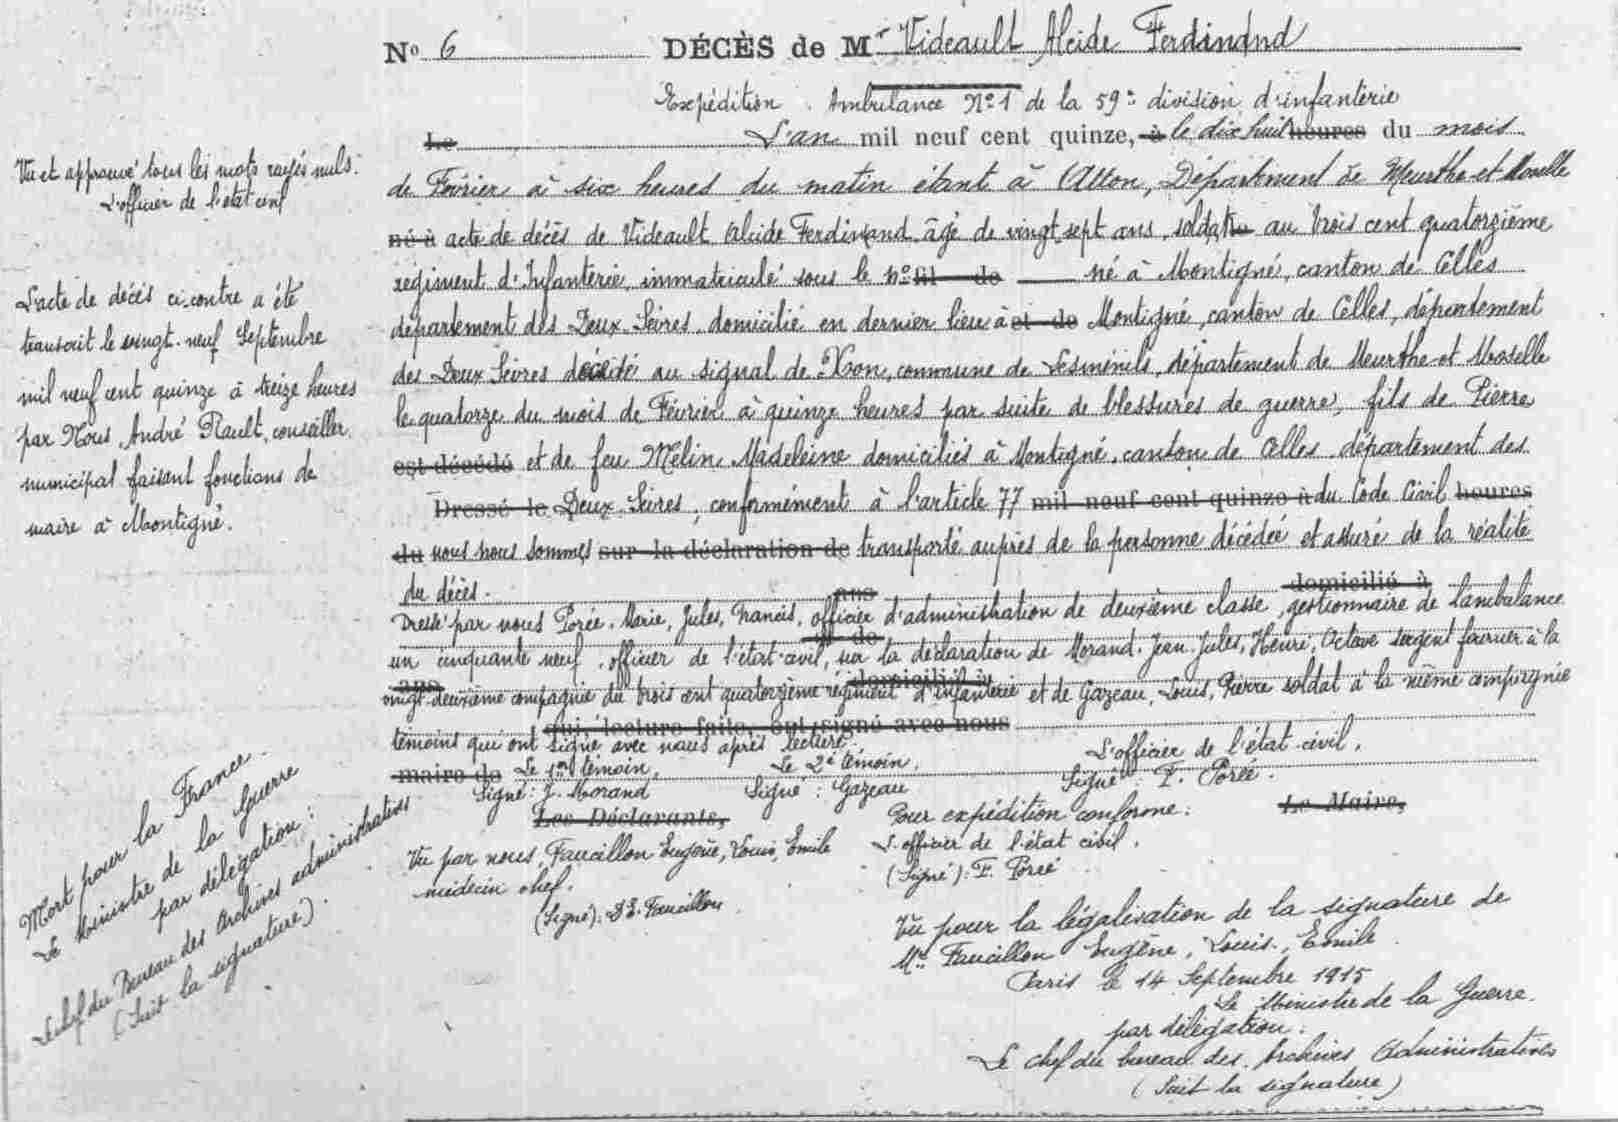 No 6 DÉCÈS de Mr Videault Alcide Ferdinand
Expédition. Ambulance No 1 de la 59e division d'infanterie
Le L'an mil neuf cent quinze, à le dix huit heures du mois
de Février à six heures du matin étant à Atton, Département de Meurthe et Moselle
né à acte de décès de Videault Alcide Ferdinand, âgé de vingt sept ans, soldat au trois cent quatorzième
régiment d'Infanterie, immatriculé sous le no fil de né à Montigné, canton de Celles
département des Deux Sèvres, domicilié en dernier lieu à et de Montigné, canton de Celles, département
des Deux Sèvres décédé au signal de Xon, commune de Lesménils, département de Meurthe et Moselle
le quatorze du mois de Février à quinze heures par suite de blessures de guerre, fils de Pierre
est décédé et de feu Mélin Madeleine domiciliés à Montigné, canton de Celles, département des
Dressé le Deux Sèvres, conformément à l'article 77 mil neuf cent quinze à du Code Civil heures
du nous nous sommes sur la déclaration de transporté auprès de la personne décédée et assuré de la réalité
du décès. ans domicilié à
Dressé par nous Porée, Marie, Jules, Francis, officier d'administration de deuxième classe, gestionnaire de l'ambulance
un cinquante neuf, officier de l'état-civil, sur la déclaration de Morand, Jean, Jules, Henri, Octave sergent fourrier à la
ans domicilié à
vingt-deuxième compagnie du trois cent quatorzième régiment d'infanterie et de Gazeau, Louis, Pierre soldat à la même compagnie
qui, lecture faite, ont signé avec nous
témoins qui ont signé avec nous après lecture.
maire de Le 1er témoin, Le 2e témoin, L'officier de l'état-civil,
Signé: J. Morand Signé: Gazeau Signé: F. Porée.
Les Déclarants, Pour expédition conforme: Le Maire,
Vu par nous, Faucillon Eugène, Louis, Emile L'officier de l'état civil,
médecin chef. (Signé): F. Porée
(Signé): E. Faucillon
Vu pour la légalisation de la signature de
Mr Faucillon Eugène, Louis, Emile
Paris le 14 Septembre 1915
Le Ministre de la Guerre
par délégation:
Le chef du bureau des Archives Administratives
(Suit la signature)
Vu et approuvé tous les mots rayés nuls.
L'officier de l'état civil
L'acte de décès ci-contre a été
transcrit le vingt-neuf Septembre
mil neuf cent quinze à treize heures
par Nous, André Rault, conseiller
municipal faisant fonctions de
maire à Montigné.
Mort pour la France
Le Ministre de la Guerre
par délégation:
Le chef du Bureau des Archives administratives
(Suit la signature).